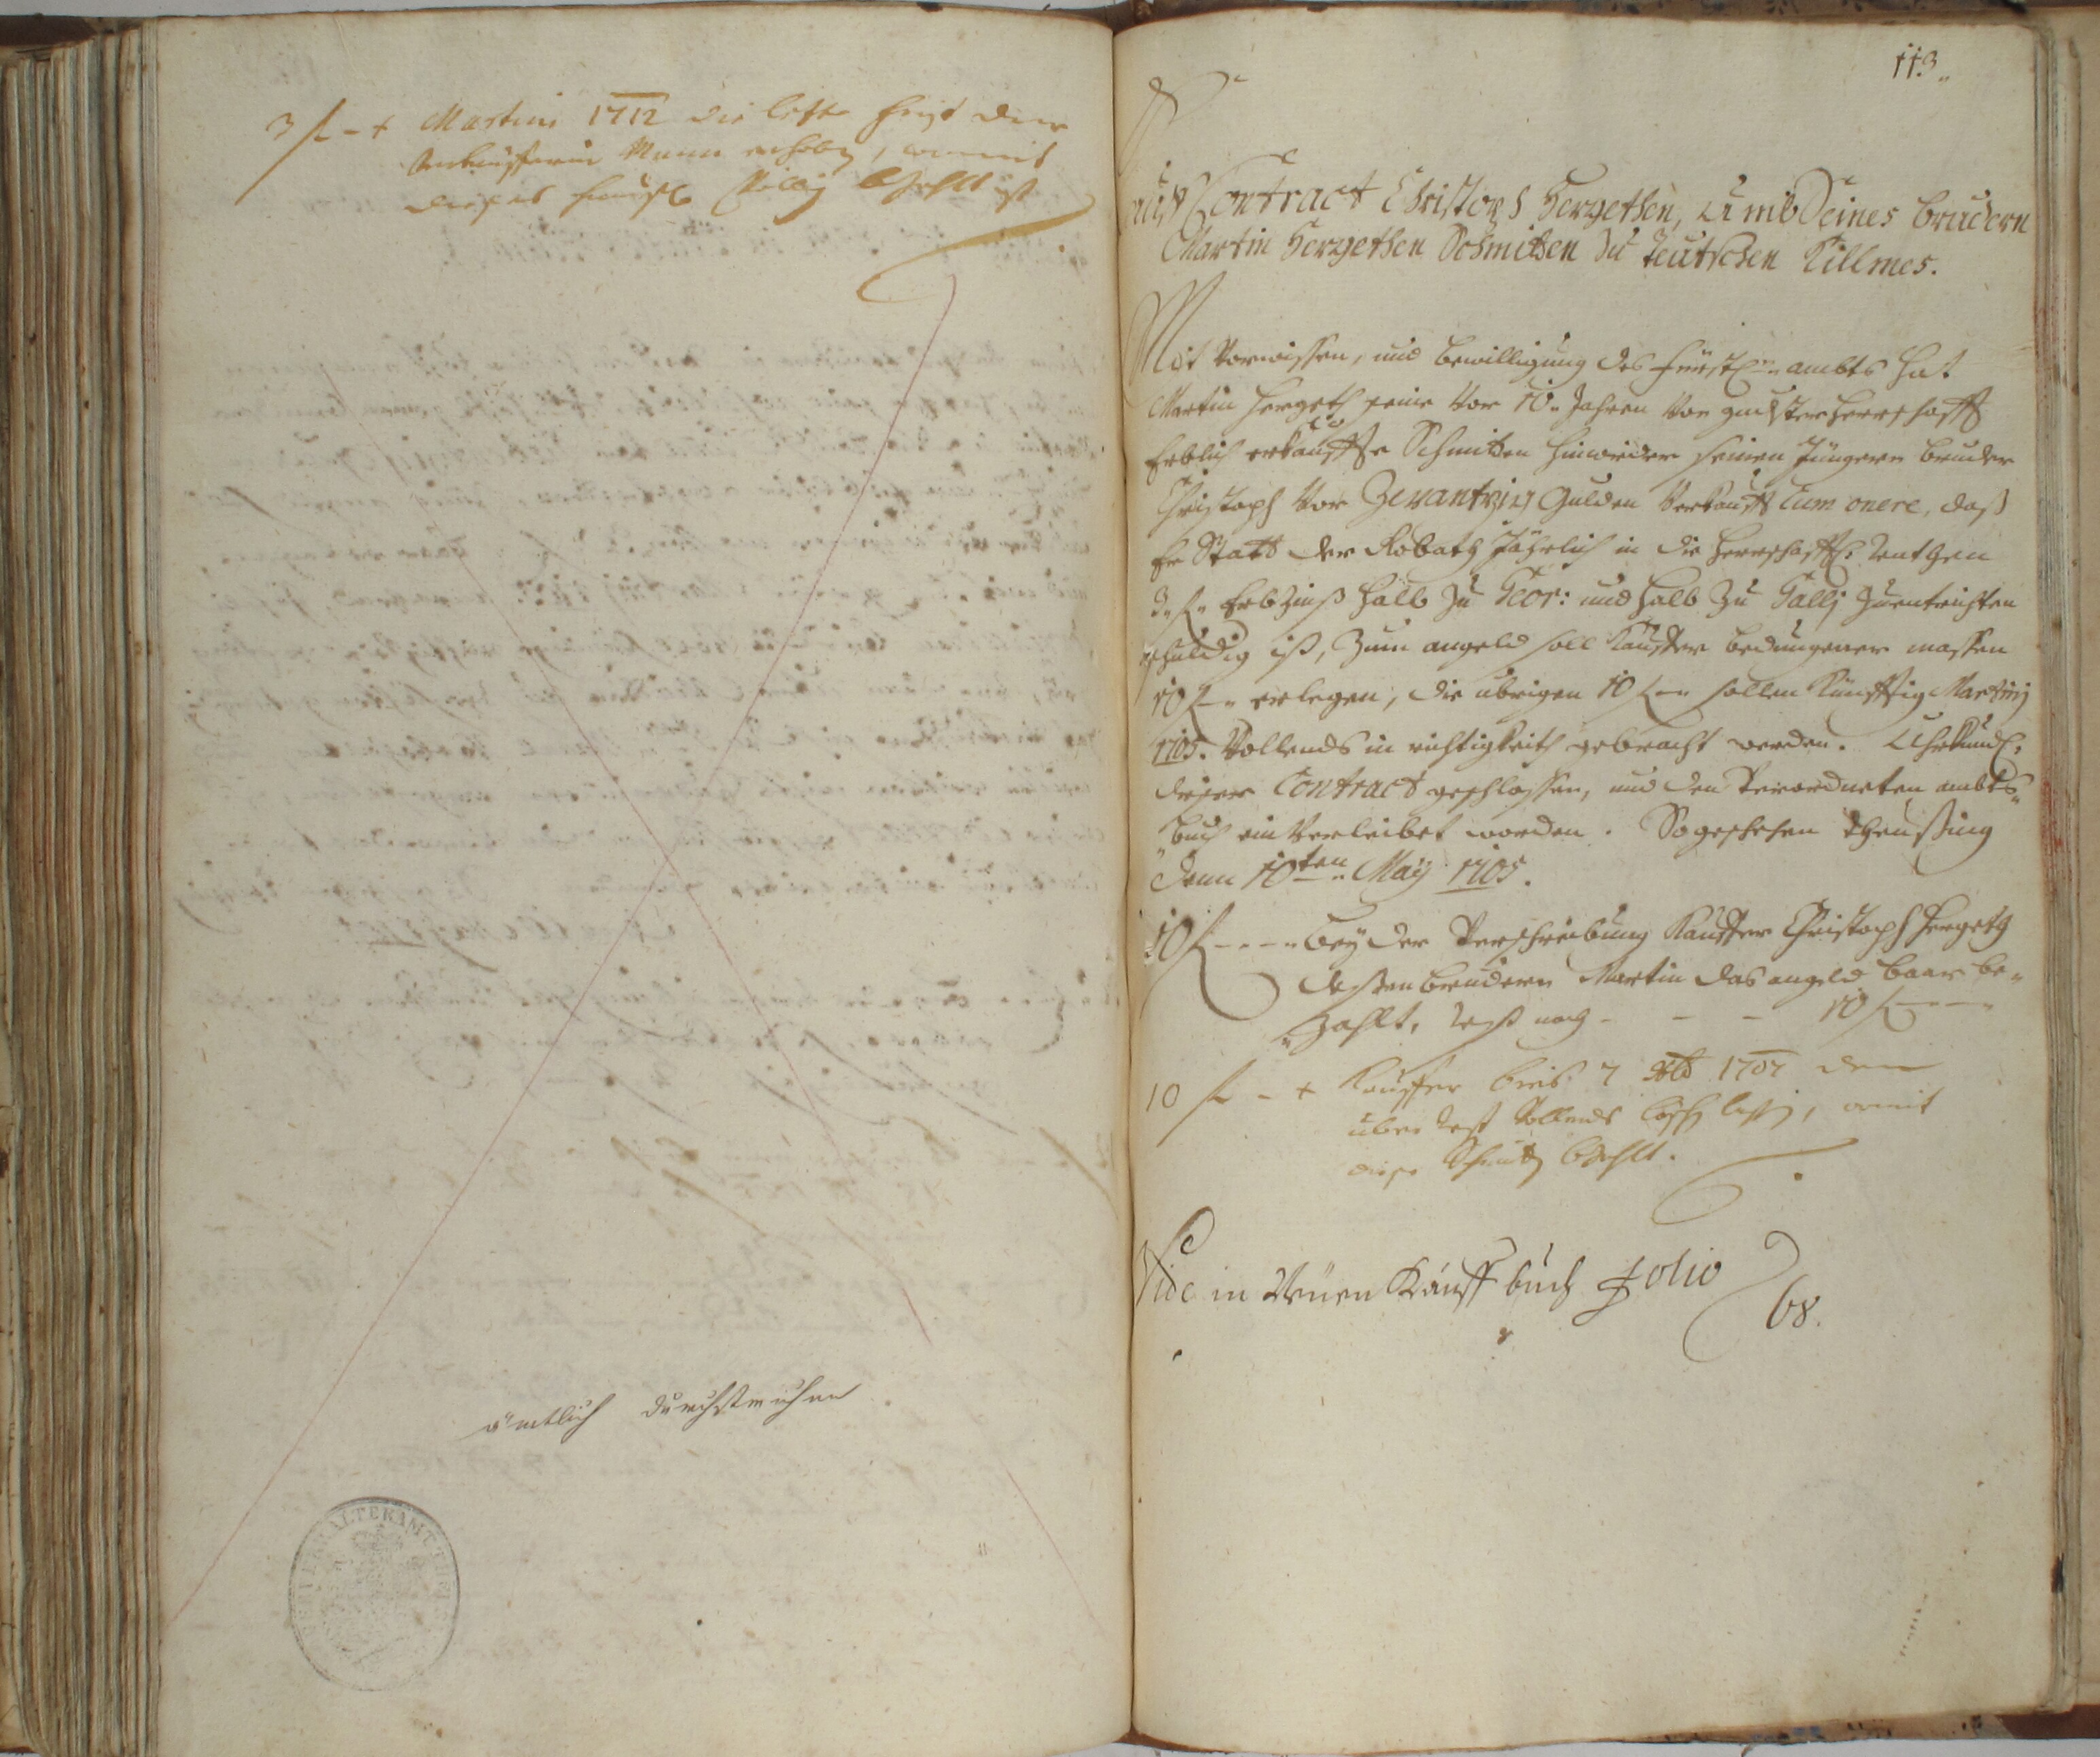 3 f – + Martini 1712 die letzte frist der
Verkäufferin Mann erhoben, womit
dieses Häußl völlig bezahlt ist
ämtlich durchstrichen
113.
Contract Christoph Hergethen, umb Seines brudern
Martin Hergethen Schmitten zu Teutschen Killmes.
Mit Vorwissen, und bewilligung des Fürstl: ambts hat
Martin Hergeth seine Vor 10. Jahren Von gnädigster Herrschafft
Erblich erkauffte Schmitten hinwider seinen Jüngern bruder
Christoph Vor Zwantzig Gulden Verkaufft cum onere, daß
Er Statt der Robath Jährlich in die Herrschafftl: Renthen
3. f. Erbzinß halb zu Geor: und halb zu Gallj zuentrichten
schuldig ist, Zum angeld soll Kauffer bedungener massen
10 f – erlegen, die übrigen 10 f – sollen Künfftig Martinj
1705. Vollends in richtigkeith gebracht werden. Uhrkundl:
dieser Contract geschlossen, und den Verordneten ambts
buch ein Verleibet worden. So geschehen Theusing
denn 10ten May 1705.
10 f – – – bey der Verschreibung Kauffer Christoph Hergeth
dessen brudern Martin das angeld baar be-
zahlt, Rest noch – – – 10 f – – –
10 f – + Kauffer bies 7 1707 den
über Rest Vollends, womit
diese Schmitten bezahlt.
Vide in Neuen Kauff buch Folio
68.